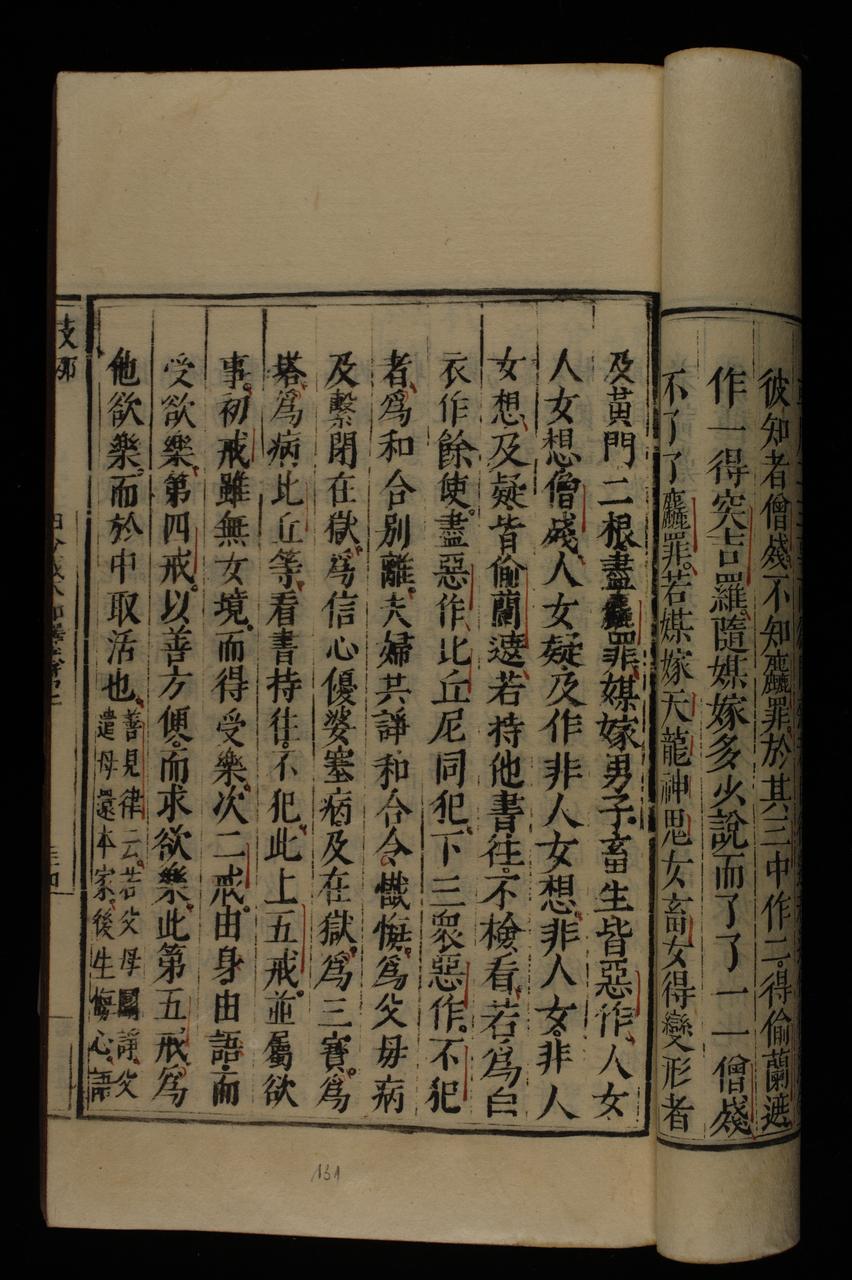 彼知者僧殘不知麤罪於其三中作二得偷蘭遮
作一得突吉羅隨媒嫁多少說而了了一一僧殘
不了了麤罪若媒嫁天龍神鬼女畜女得變形者
及黃門二根盡麤罪媒嫁男子畜生皆惡作人女
人女想僧殘人女疑及作非人女想非人女非人
女想及疑皆偷蘭遮若持他書往不檢看若為白
衣作餘使盡惡作比丘尼同犯下三眾惡作不犯
者為和合別離夫婦共諍和合令懺悔為父母病
及繫閉在獄為信心優婆塞病及在獄為三寶為
塔為病比丘等看書持往不犯此上五戒並屬欲
事初戒雖無女境而得受樂次二戒由身由語而
受欲樂第四戒以善方便而求欲樂此第五戒為
他欲樂而於中取活也善見律云若父母鬬諍父
遣母還本家後生悔心語
支那